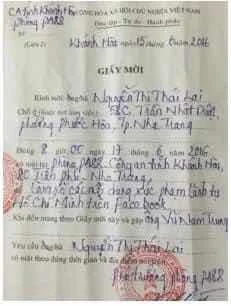 CA tỉnh Khánh Hòa CỘNG HÒA XÃ HỘI CHỦ NGHĨA VIỆT NAM
Phòng PA88 Độc lập - Tự do - Hạnh phúc
(Lần 2) Khánh Hòa ngày 15 tháng 6 năm 2016
GIẤY MỜI
Kính mời ông/bà Nguyễn Thị Thái Lai
Chỗ ở 58C, Trần Nhật Duật,
phường Phước Hòa, Tp. Nha Trang
Đúng 8 giờ 00, ngày 17 tháng 6 năm 2016
có mặt tại phòng PA88 - Công an tỉnh Khánh Hòa,
80 Trần Phú - Nha Trang,
để Làm rõ các nội dung xúc phạm lãnh tụ
Hồ Chí Minh trên Facebook
Khi đến mang theo Giấy mời này và gặp ông Vũ Nam Trung
Yêu cầu ông/bà Nguyễn Thị Thái Lai
có mặt theo đúng thời gian và địa điểm nói trên.
Phó trưởng phòng PA88